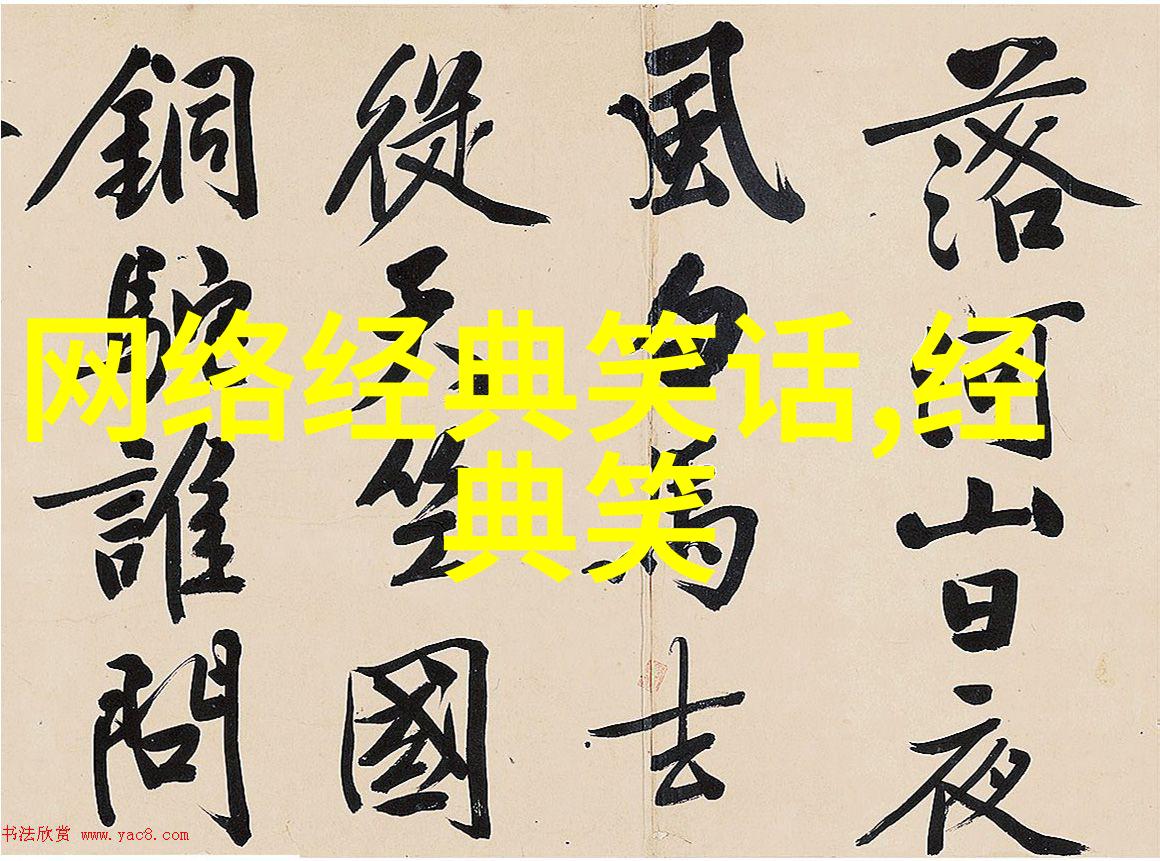 网络经典笑话,经
典笑
落河山日夜
風白馬去
從天竺國
銅駝誰問
书法欣赏 www.yac8.com